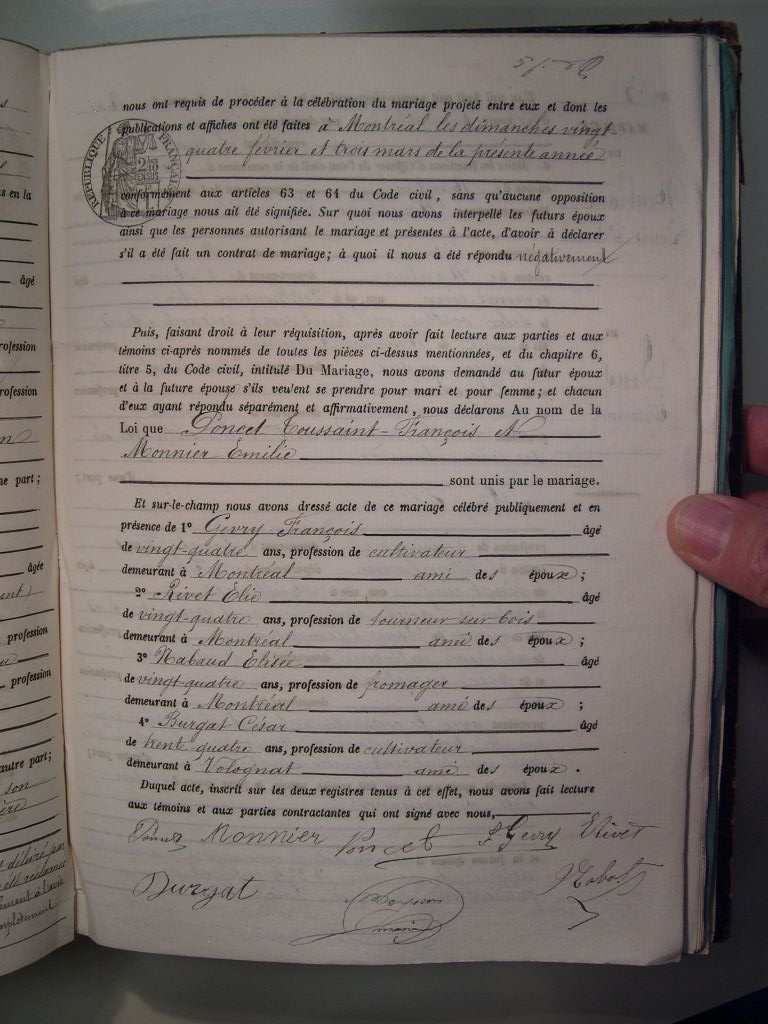 nous ont requis de procéder à la célébration du mariage projeté entre eux et dont les
publications et affiches ont été faites à Montréal les dimanches vingt
quatre février et trois mars de la présente année
RÉPUBLIQUE FRANÇAISE
conformément aux articles 63 et 64 du Code civil, sans qu'aucune opposition
à ce mariage nous ait été signifiée. Sur quoi nous avons interpellé les futurs époux
ainsi que les personnes autorisant le mariage et présentes à l'acte, d'avoir à déclarer
s'il a été fait un contrat de mariage; à quoi il nous a été répondu négativement
Puis, faisant droit à leur réquisition, après avoir fait lecture aux parties et aux
témoins ci-après nommés de toutes les pièces ci-dessus mentionnées, et du chapitre 6,
titre 5, du Code civil, intitulé Du Mariage, nous avons demandé au futur époux
et à la future épouse s'ils veulent se prendre pour mari et pour femme; et chacun
d'eux ayant répondu séparément et affirmativement, nous déclarons Au nom de la
Loi que Poncet Toussaint-François et
Monnier Emilie
sont unis par le mariage.
Et sur-le-champ nous avons dressé acte de ce mariage célébré publiquement et en
présence de 1° Gevry François âgé
de vingt-quatre ans, profession de cultivateur
demeurant à Montréal ami des époux;
2° Rivet Elie âgé
de vingt-quatre ans, profession de tourneur sur bois
demeurant à Montréal ami des époux;
3° Nabaud Elisée âgé
de vingt-quatre ans, profession de fromager
demeurant à Montréal ami des époux;
4° Burgat César âgé
de trente-quatre ans, profession de cultivateur
demeurant à Volognat ami des époux.
Duquel acte, inscrit sur les deux registres tenus à cet effet, nous avons fait lecture
aux témoins et aux parties contractantes qui ont signé avec nous,
Monnier Poncet F Gevry E Rivet
Burgat
maire
en la
âgé
profession
profession
ne part;
âgée
profession
profession
autre part;
son